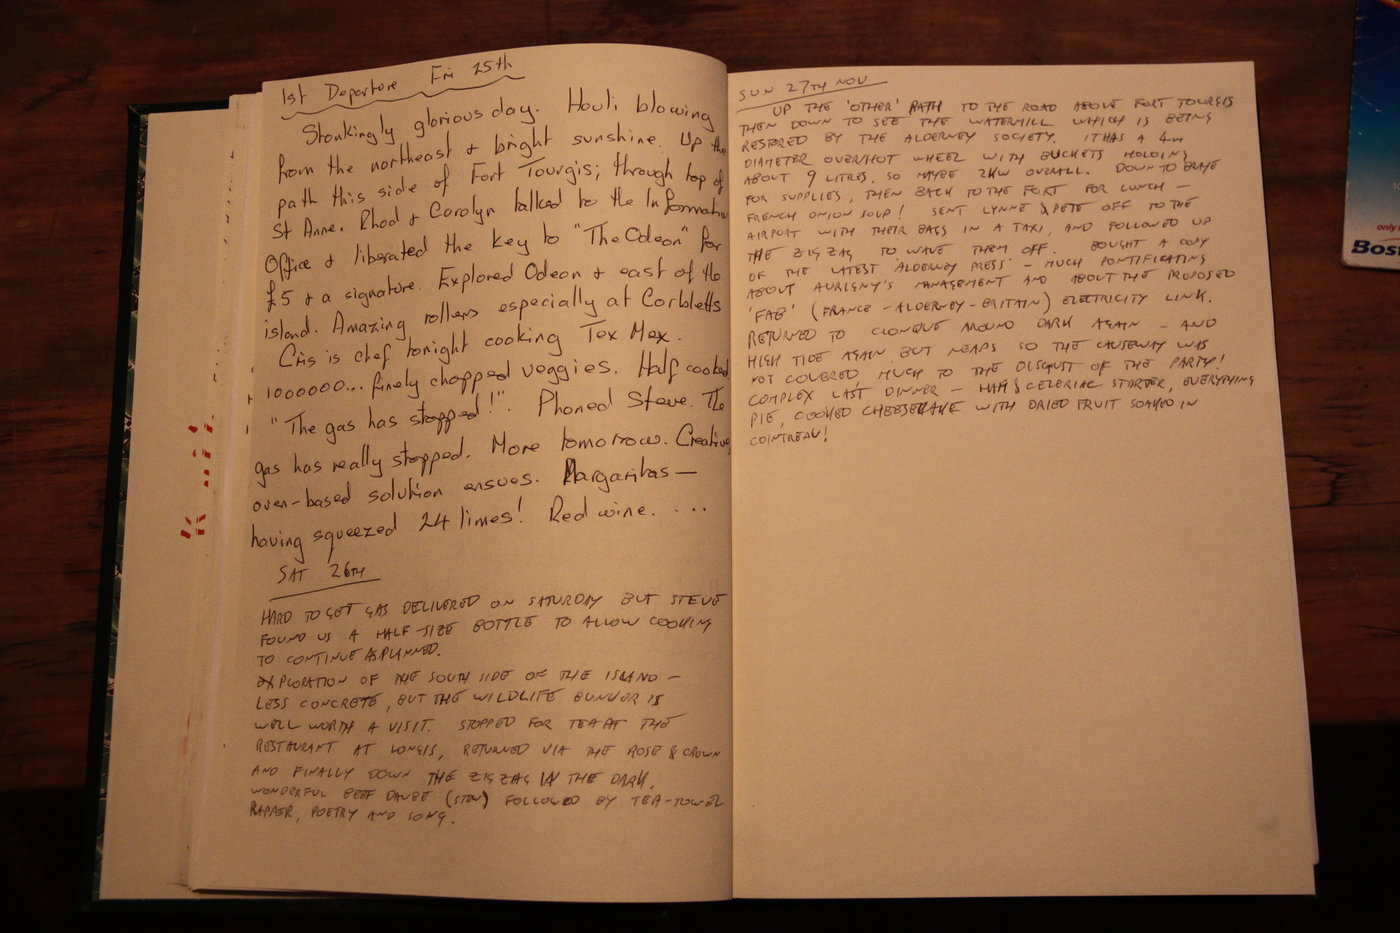 1st Departure Fri 25th
Stonkingly glorious day. Houli blowing
from the northeast & bright sunshine. Up the
path this side of Fort Tourgis; through top of
St Anne. Rhod & Carolyn talked to the Information
Office & liberated the key to "The Odeon" for
£5 & a signature. Explored Odeon & east of the
island. Amazing rollers especially at Corbletts
Cris is chef tonight cooking Tex Mex.
1000000... finely chopped veggies. Half cooked
"The gas has stopped!". Phoned Steve. The
gas has really stopped. More tomorrow. Creative
oven-based solution ensues. Margaritas —
having squeezed 24 limes! Red wine. ....
SAT 26TH
HARD TO GET GAS DELIVERED ON SATURDAY BUT STEVE
FOUND US A HALF-SIZE BOTTLE TO ALLOW COOKING
TO CONTINUE AS PLANNED.
EXPLORATION OF THE SOUTH SIDE OF THE ISLAND –
LESS CONCRETE, BUT THE WILDLIFE BUNKER IS
WELL WORTH A VISIT. STOPPED FOR TEA AT THE
RESTAURANT AT LONGIS, RETURNED VIA THE ROSE & CROWN
AND FINALLY DOWN THE ZIGZAG IN THE DARK.
WONDERFUL BEEF DAUBE (STEW) FOLLOWED BY TEA-TOWEL
RAPPER, POETRY AND SONG.
SUN 27TH NOV
UP THE 'OTHER' PATH TO THE ROAD ABOVE FORT TOURGIS
THEN DOWN TO SEE THE WATERMILL WHICH IS BEING
RESTORED BY THE ALDERNEY SOCIETY. IT HAS A 4m
DIAMETER OVERSHOT WHEEL WITH BUCKETS HOLDING
ABOUT 9 LITRES, SO MAYBE 2KW OVERALL. DOWN TO BRAYE
FOR SUPPLIES, THEN BACK TO THE FORT FOR LUNCH –
FRENCH ONION SOUP! SENT LYNNE & PETE OFF TO THE
AIRPORT WITH THEIR BAGS IN A TAXI, AND FOLLOWED UP
THE ZIGZAG TO WAVE THEM OFF. BOUGHT A COPY
OF THE LATEST 'ALDERNEY PRESS' – MUCH PONTIFICATING
ABOUT AURIGNY'S MANAGEMENT AND ABOUT THE PROPOSED
'FAB' (FRANCE – ALDERNEY – BRITAIN) ELECTRICITY LINK.
RETURNED TO CLONQUE AROUND DARK AGAIN – AND
HIGH TIDE AGAIN, BUT NEAPS SO THE CAUSEWAY WAS
NOT COVERED, MUCH TO THE DISGUST OF THE PARTY!
COMPLEX LAST DINNER – HAM & CELERIAC STARTER, EVERYTHING
PIE, COOKED CHEESECAKE WITH DRIED FRUIT SOAKED IN
COINTREAU!
only
Bost